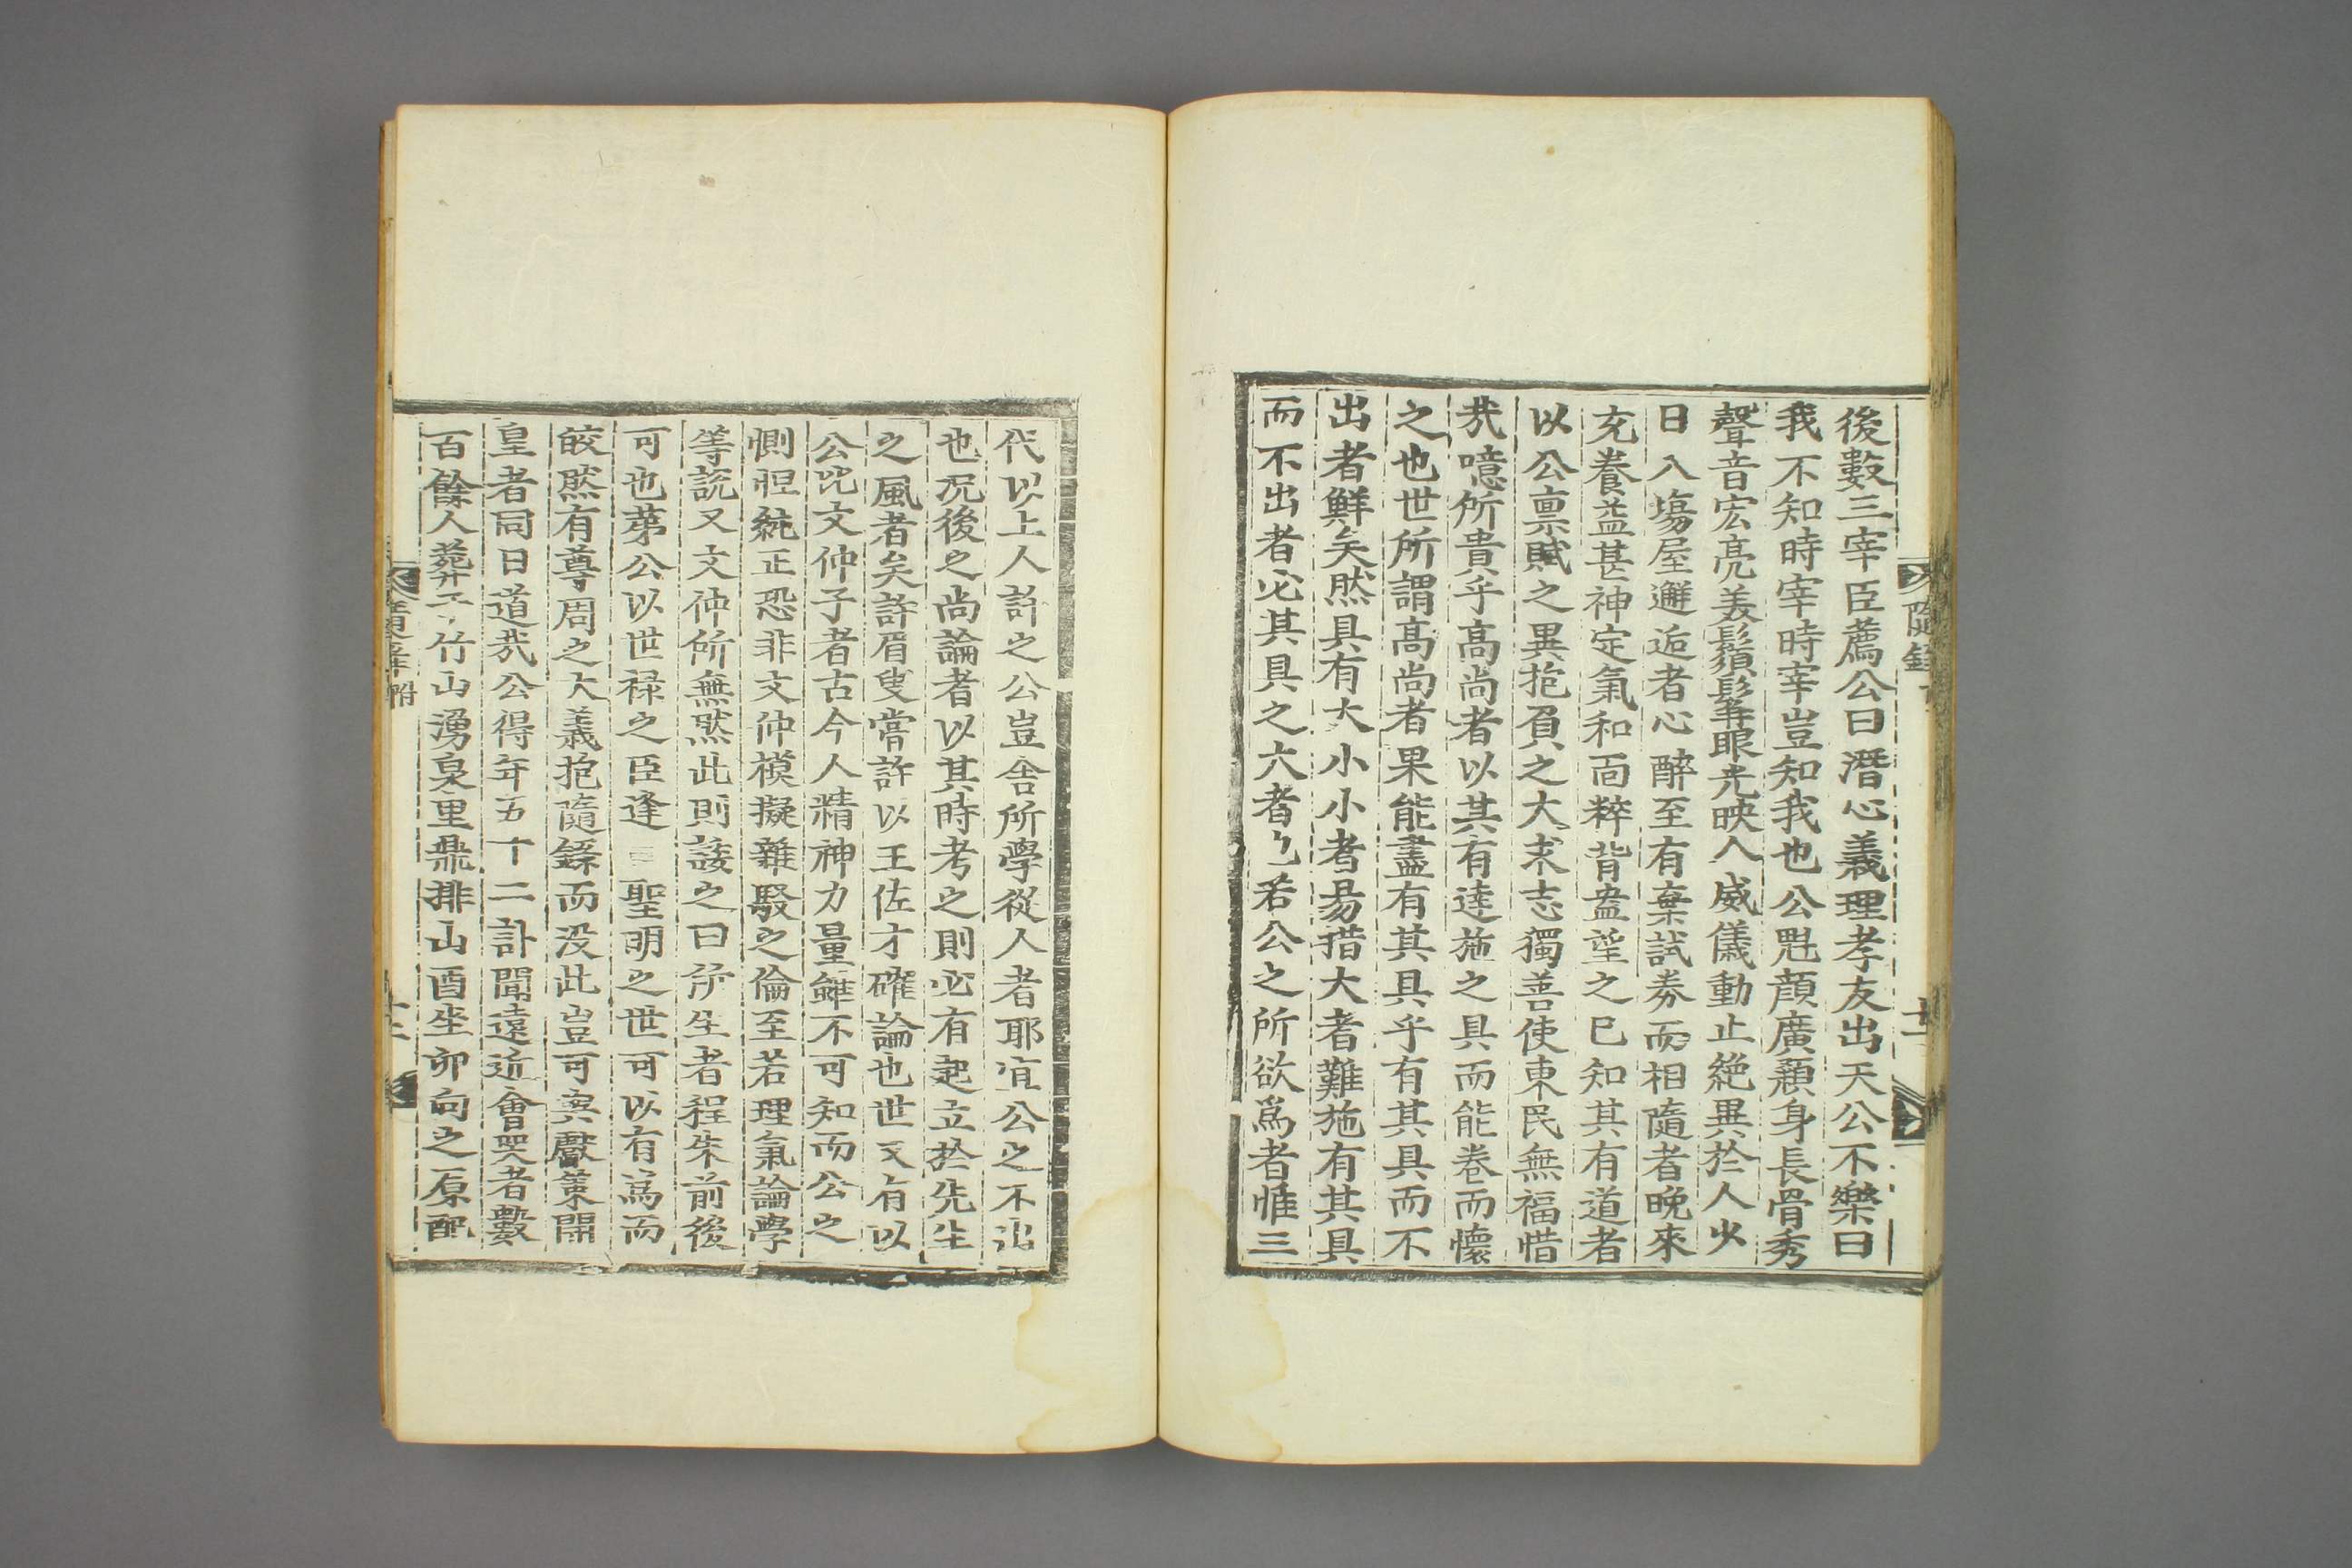 後數三宰臣薦公曰潛心義理孝友出天公不樂曰
我不知時宰時宰豈知我也公魁顔廣顙身長骨秀
聲音宏亮美鬚髯眼光映人威儀動止絶異於人少
日入塲屋邂逅者心醉至有棄試券而相隨者晩來
充養益甚神定氣和面粹背盎望之已知其有道者
以公禀賦之異抱負之大求志獨善使東民無福惜
㢤噫所貴乎高尚者以其有達施之具而能卷而懷
之也世所謂高尚者果能盡有其具乎有其具而不
出者鮮矣然具有大小小者易措大者難施有其具
而不出者必其具之大者也若公之所欲爲者惟三
隨録
代以上人許之公豈舍所學從人者耶宜公之不出
也况後之尚論者以其時考之則必有起立於先生
之風者矣許眉叟嘗許以王佐才確論也世又有以
公比文仲子者古今人精神力量雖不可知而公之
惻怛純正恐非文仲模擬雜駁之倫至若理氣論學
等説又文仲所無然此則諉之曰所生者程朱前後
可也第公以世禄之臣逢聖明之世可以有爲而
皎然有尊周之大義抱隨録而没此豈可與獻策開
皇者同日道㢤公得年五十二訃聞遠近會哭者數
百餘人葬于竹山湧泉里鼎排山酉坐卯向之原配
附
十二